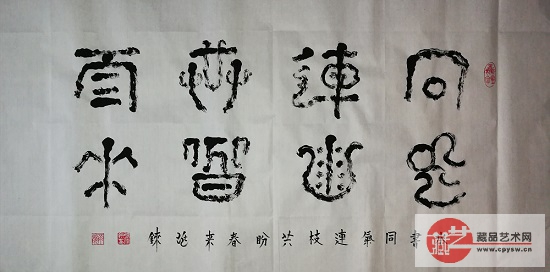 同氣連枝共盼春來
同氣連枝共盼春来
藏品艺术网
www.cpysw.cn